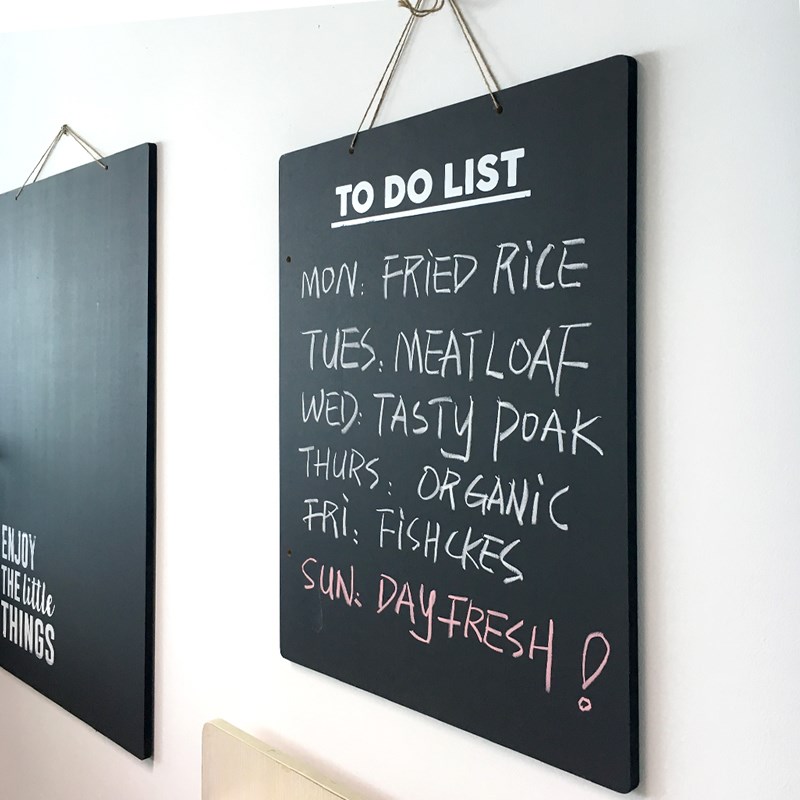 TO DO LIST
MON: FRIED RICE
TUES: MEATLOAF
WED: TASTY POAK
THURS: ORGANIC
FRI: FISHCKES
SUN: DAY FRESH!
ENJOY
THE little
THINGS